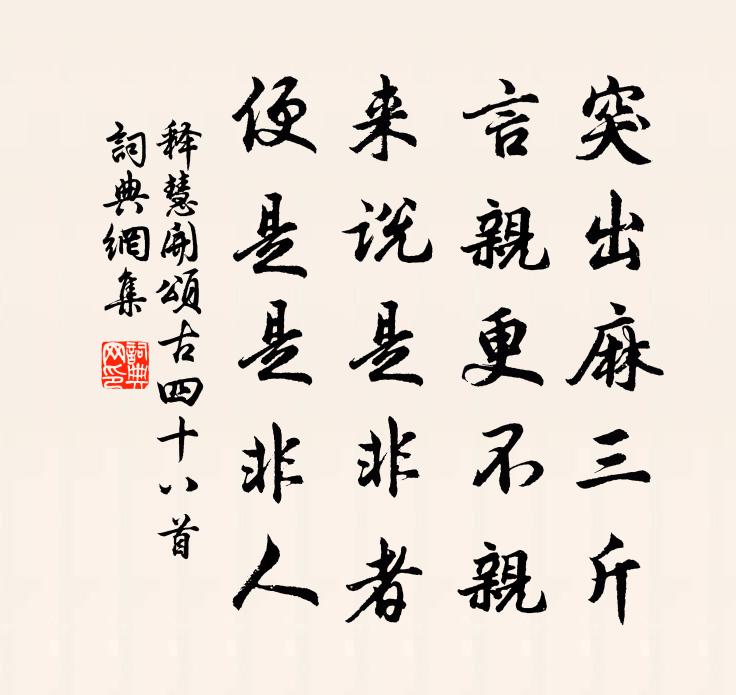 突出麻三斤
言親更不親
来说是非者
便是是非人
释慧開頌古四十八首
詞典網集
詞典网印